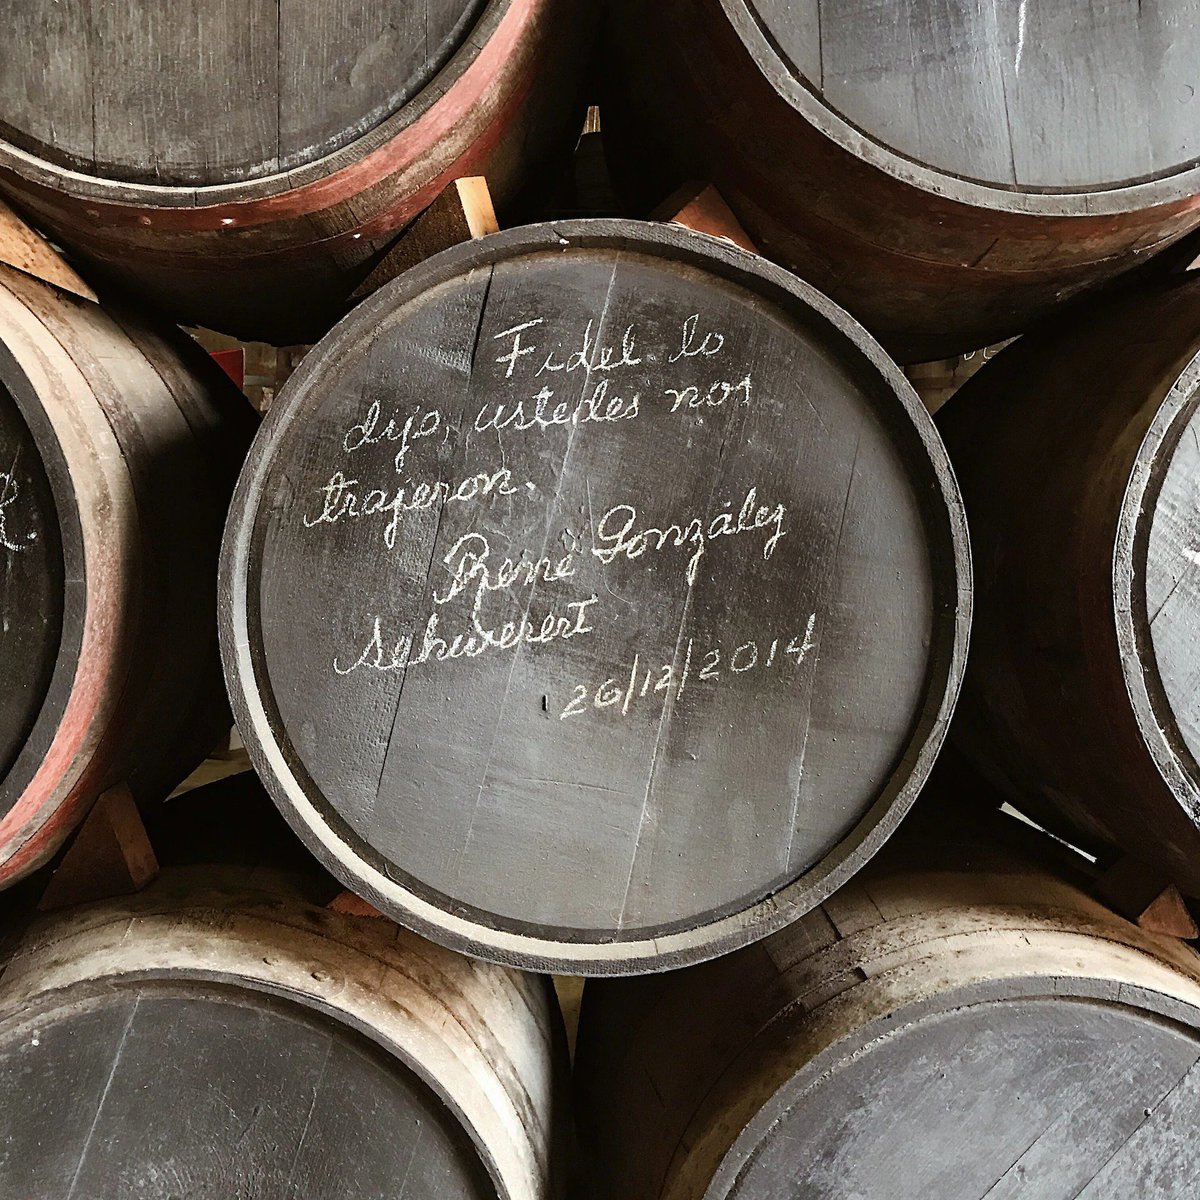 Fidel lo
dijo, ustedes nos
trajeron.
René González
Sehwerert
26/12/2014